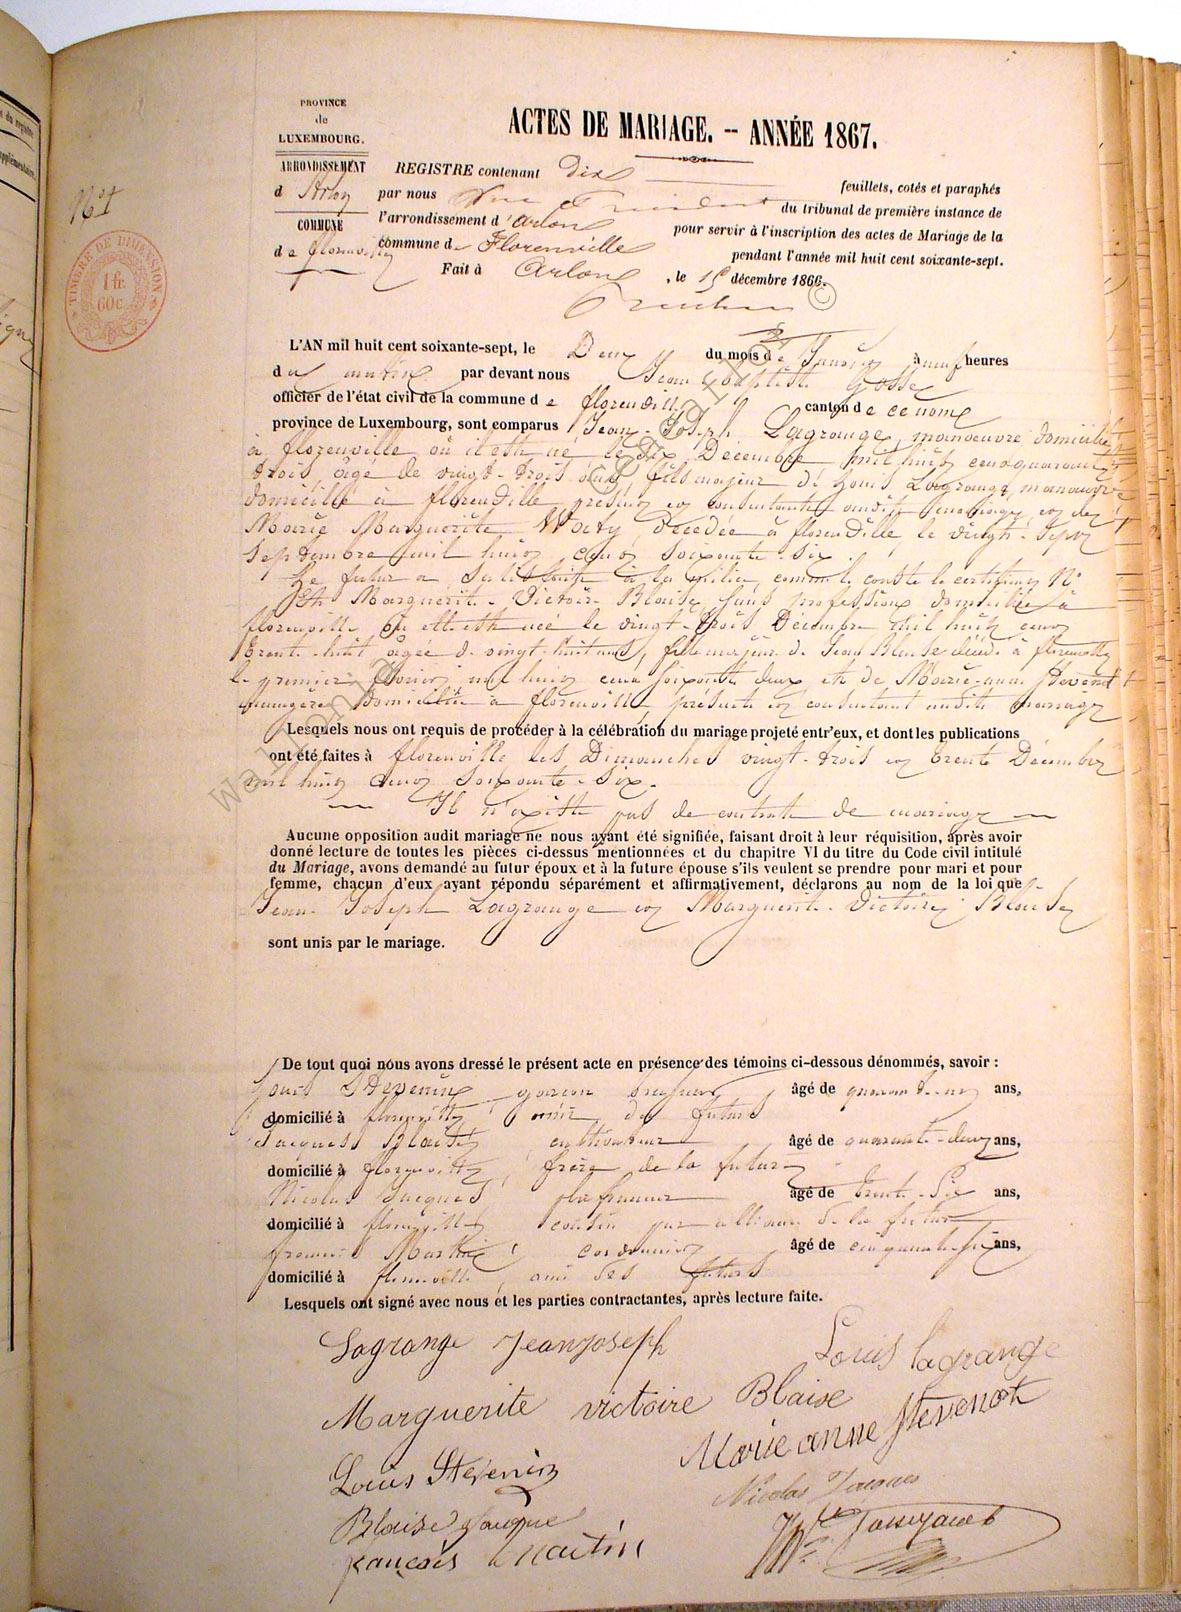 PROVINCE
de
LUXEMBOURG.
ARRONDISSEMENT
d'Arlon
COMMUNE
de florenville
N° 1
TIMBRE DE DIMENSION
1 fr.
60 c.
ACTES DE MARIAGE. -- ANNÉE 1867.
REGISTRE contenant Dix feuillets, cotés et paraphés
par nous du tribunal de première instance de
l'arrondissement d'Arlon pour servir à l'inscription des actes de Mariage de la
commune de Florenville pendant l'année mil huit cent soixante-sept.
Fait à Arlon, le 15 décembre 1866.
L'AN mil huit cent soixante-sept, le Deux du mois de Janvier à neuf heures
du matin par devant nous Jean Baptiste Gosse
officier de l'état civil de la commune de florenville canton de ce nom
province de Luxembourg, sont comparus Jean-Joseph Lagrange, manoeuvre domicilié
à florenville où il est né le dix Décembre mil huit cent quarante
trois âgé de vingt-trois ans, fils majeur de Louis Lagrange, manoeuvre
domicilié à florenville présent et consentant audit mariage et de
Marie Marguerite décédée à florenville le vingt-sept
Septembre mil huit cent soixante-six.
Le futur a satisfait à la milice comme le conste le certificat N°
Et Marguerite-Victoire Blaise, sans profession domiciliée à
florenville où elle est née le vingt-trois Décembre mil huit cent
trente-huit âgée de vingt-huit ans, fille majeure de Jean Blaise décédé à florenville
le premier février mil huit cent soixante deux et de Marie-anne Stevenot
ménagère domiciliée à florenville, présente et consentant audit mariage
Lesquels nous ont requis de procéder à la célébration du mariage projeté entr'eux, et dont les publications
ont été faites à florenville les Dimanches vingt-trois et trente Décembre
mil huit cent soixante-six.
Il n'existe pas de contrat de mariage
Aucune opposition audit mariage ne nous ayant été signifiée, faisant droit à leur réquisition, après avoir
donné lecture de toutes les pièces ci-dessus mentionnées et du chapitre VI du titre du Code civil intitulé
du Mariage, avons demandé au futur époux et à la future épouse s'ils veulent se prendre pour mari et pour
femme, chacun d'eux ayant répondu séparément et affirmativement, déclarons au nom de la loi que
Jean-Joseph Lagrange et Marguerite-Victoire Blaise
sont unis par le mariage.
De tout quoi nous avons dressé le présent acte en présence des témoins ci-dessous dénommés, savoir :
Louis Stevenin garçon brasseur âgé de ans,
domicilié à florenville, ami du futur
Jacques Blaise, cultivateur âgé de quarante-deux ans,
domicilié à florenville, frère de la future
Nicolas Jacques, plafonneur âgé de trente-six ans,
domicilié à florenville cousin par alliance de la future
françois Martin, cordonnier âgé de cinquante-six ans,
domicilié à florenville, ami des futurs
Lesquels ont signé avec nous et les parties contractantes, après lecture faite.
Lagrange Jean joseph
Louis lagrange
Marguerite victoire Blaise
Marie anne Stevenot
Louis Stevenin
Nicolas Jacques
Blaise Jacque
françois Martin